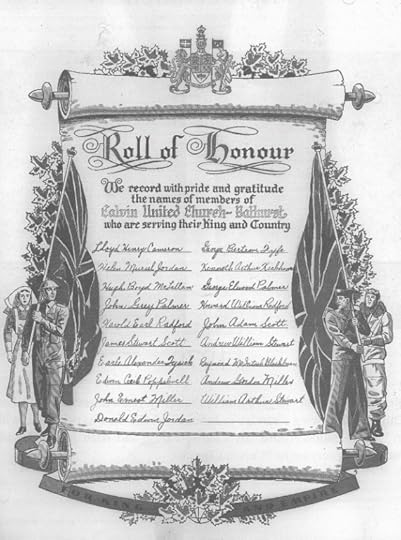 Roll of Honour
We record with pride and gratitude
the names of members of
Calvin United Church - Bathurst
who are serving their King and Country
Lloyd Henry Cameron
Helen Muriel Jordan
Hugh Boyd McLellan
John Grey Palmer
Harold Earl Radford
James Stewart Scott
Earle Alexander
Edwin Cecil Poppelwell
John Ernest Miller
Donald Edwin Jordan
George Bertram Fyffe
Kenneth Arthur
George Elwood Palmer
Howard Williams Radford
John Adam Scott
Andrew William Stewart
Raymond McIntosh
Andrew Gordon Mills
William Arthur Stewart
FOR KING AND EMPIRE